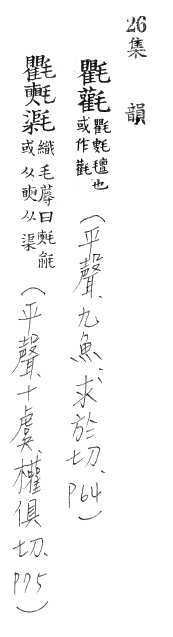 26 集 韻
氍 氍 氈也 或作 (平聲、九魚、求於切、P64)
氍 織毛蓐曰 或从 从渠 (平聲、十虞、權俱切、P75)